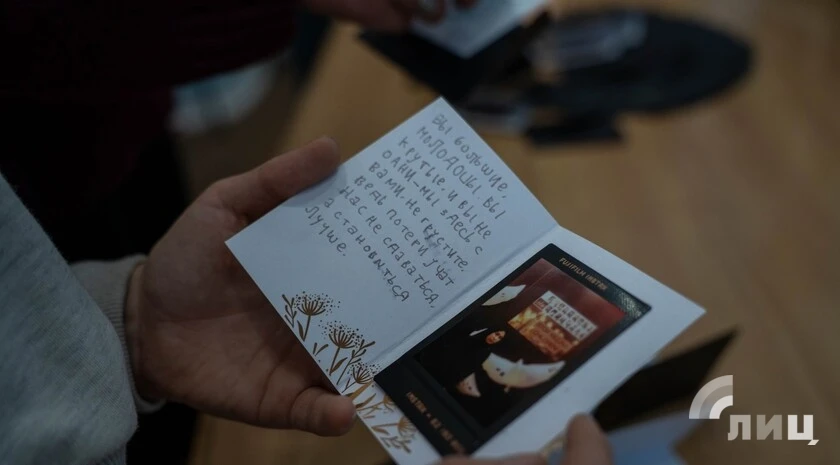 ВЫ БОЛЬШИЕ
МОЛОДЦЫ, ВЫ
КРУТЫЕ, И ВЫ НЕ
ОДНИ-МЫ ЗДЕСЬ С
ВАМИ. НЕ ГРУСТИТЕ,
ВЕДЬ ПОТЕРИ УЧАТ
НАС НЕ СДАВАТЬСЯ,
А СТАНОВИТЬСЯ
ЛУЧШЕ.
FUJIFILM INSTAX
ЛИЦ